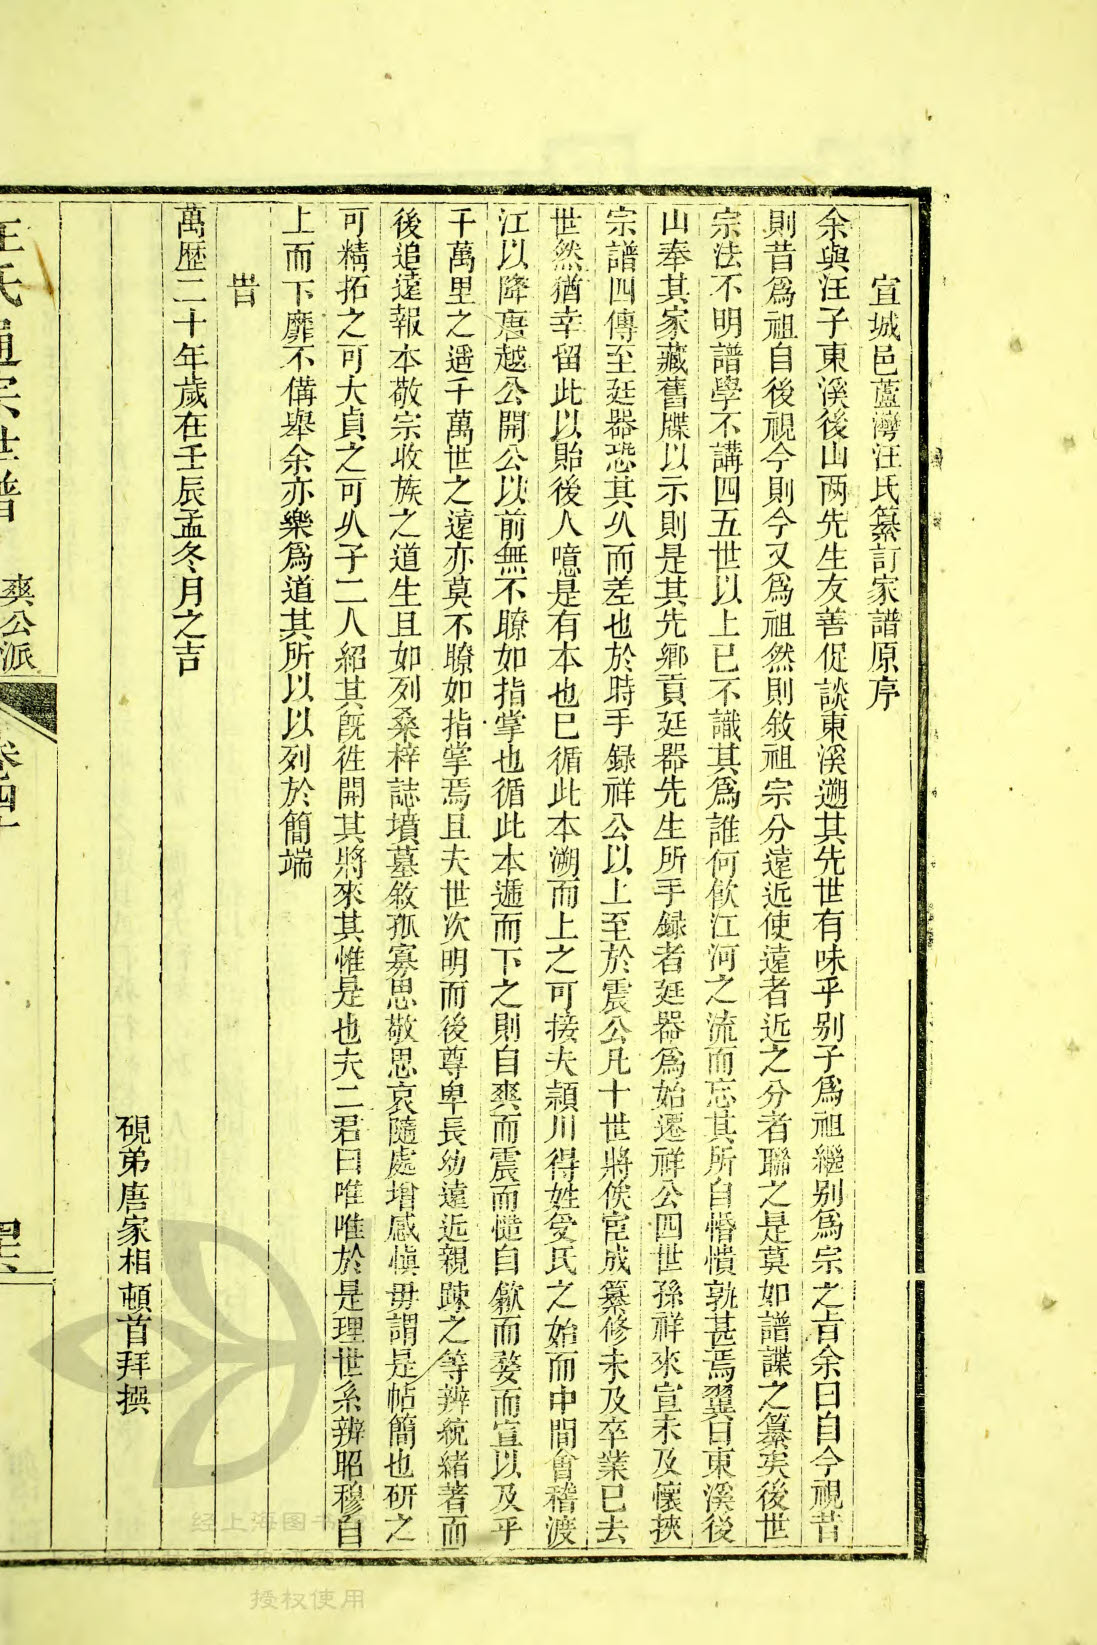 宣城邑蘆灣汪氏纂訂家譜原序
余與汪子東溪後山两先生友善促談東溪遡其先世有味乎别子爲祖繼别爲宗之旨余曰自今視昔
則昔爲祖自後視今則今又爲祖然則敘祖宗分遠近使遠者近之分者聯之是莫如譜諜之纂矣後世
宗法不明譜學不講四五世以上已不識其爲誰何飲江河之流而忘其所自惛憒孰甚焉翼日東溪後
山奉其家藏舊牒以示則是其先鄉貢廷器先生所手録者廷器爲始遷祥公四世孫祥來宣未及懷挾
宗譜四傳至廷器恐其乆而差也於時手録祥公以上至於震公凡十世將俟宦成纂修未及卒業已去
世然猶幸留此以貽後人噫是有本也巳循此本溯而上之可接夫潁川得姓受氏之始而中間會稽渡
江以降唐越公開公以前無不瞭如指掌也循此本遞而下之則自爽而震而慥自歙而婺而宣以及乎
千萬里之遥千萬世之遠亦莫不瞭如指掌焉且夫世次明而後尊卑長幼遠近親踈之等辨統緒著而
後追遠報本敬宗收族之道生且如列桑梓誌墳墓敘孤寡思敬思哀隨處增感愼毋謂是帖簡也研之
可精拓之可大貞之可乆子二人紹其旣徃開其將來其惟是也夫二君曰唯唯於是理世系辨昭穆自
上而下靡不備舉余亦樂爲道其所以以列於簡端
旹
萬歴二十年歲在壬辰孟冬月之吉
硯弟唐家相頓首拜撰
汪氏通宗世譜 爽公派 卷四十
经上海图书馆
授权使用